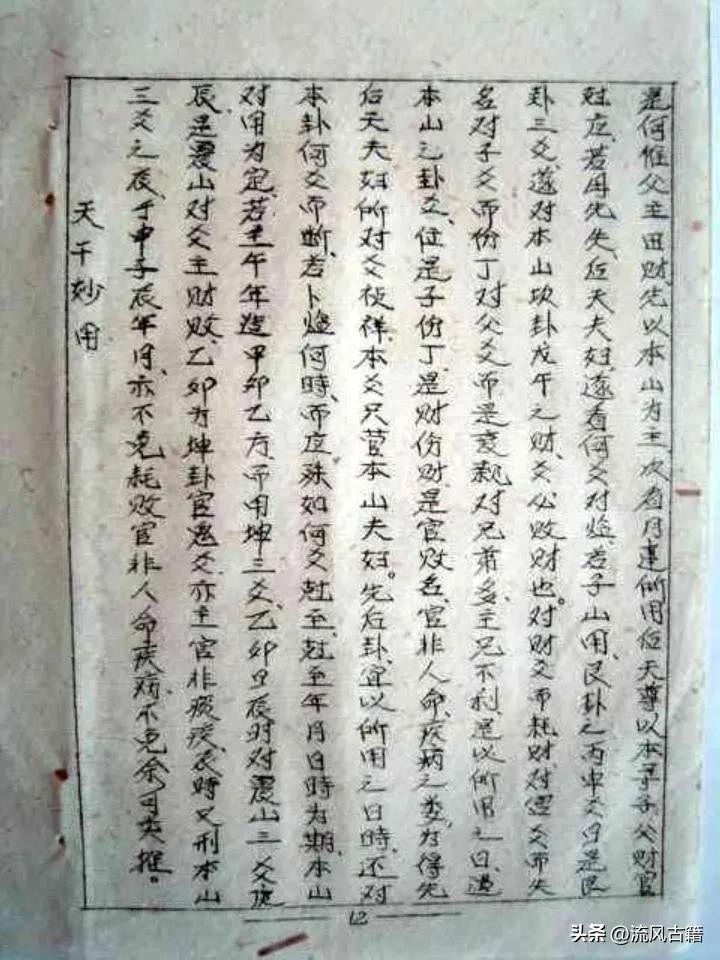 是何催父主田财先以本山为主次看月建所用位天尊以本子父财官
尅应若用先失后天夫妇遂看何爻对烧若子山用艮卦之丙申爻日是艮
卦三爻遂对本山坎卦戊午之财爻必败财也。对财爻而耗财对爻而失
名对子爻而伤丁对父爻而是对兄弟多主兄不利是以所用之日遇
本山之卦爻位是子伤丁是财伤财是官败名官非人命疾病之类为得先
后天夫妇所对爻使祥本爻只管本山夫妇。先后卦宜以所用之日时还对
本卦何爻而断若卜烧何時而应殊如何爻尅至尅至年月日時为期本山
对用为定若主午年造甲卯乙方而用坤三爻乙卯日辰时对震山三爻庚
辰是震山对爻主财败乙卯为坤卦官遇爻亦主官非痰疾辰时又刑本山
三爻之辰于申子辰年月亦不免耗败官非人命疾病不免余可类推。
天干妙用
12
头条 @流风古籍